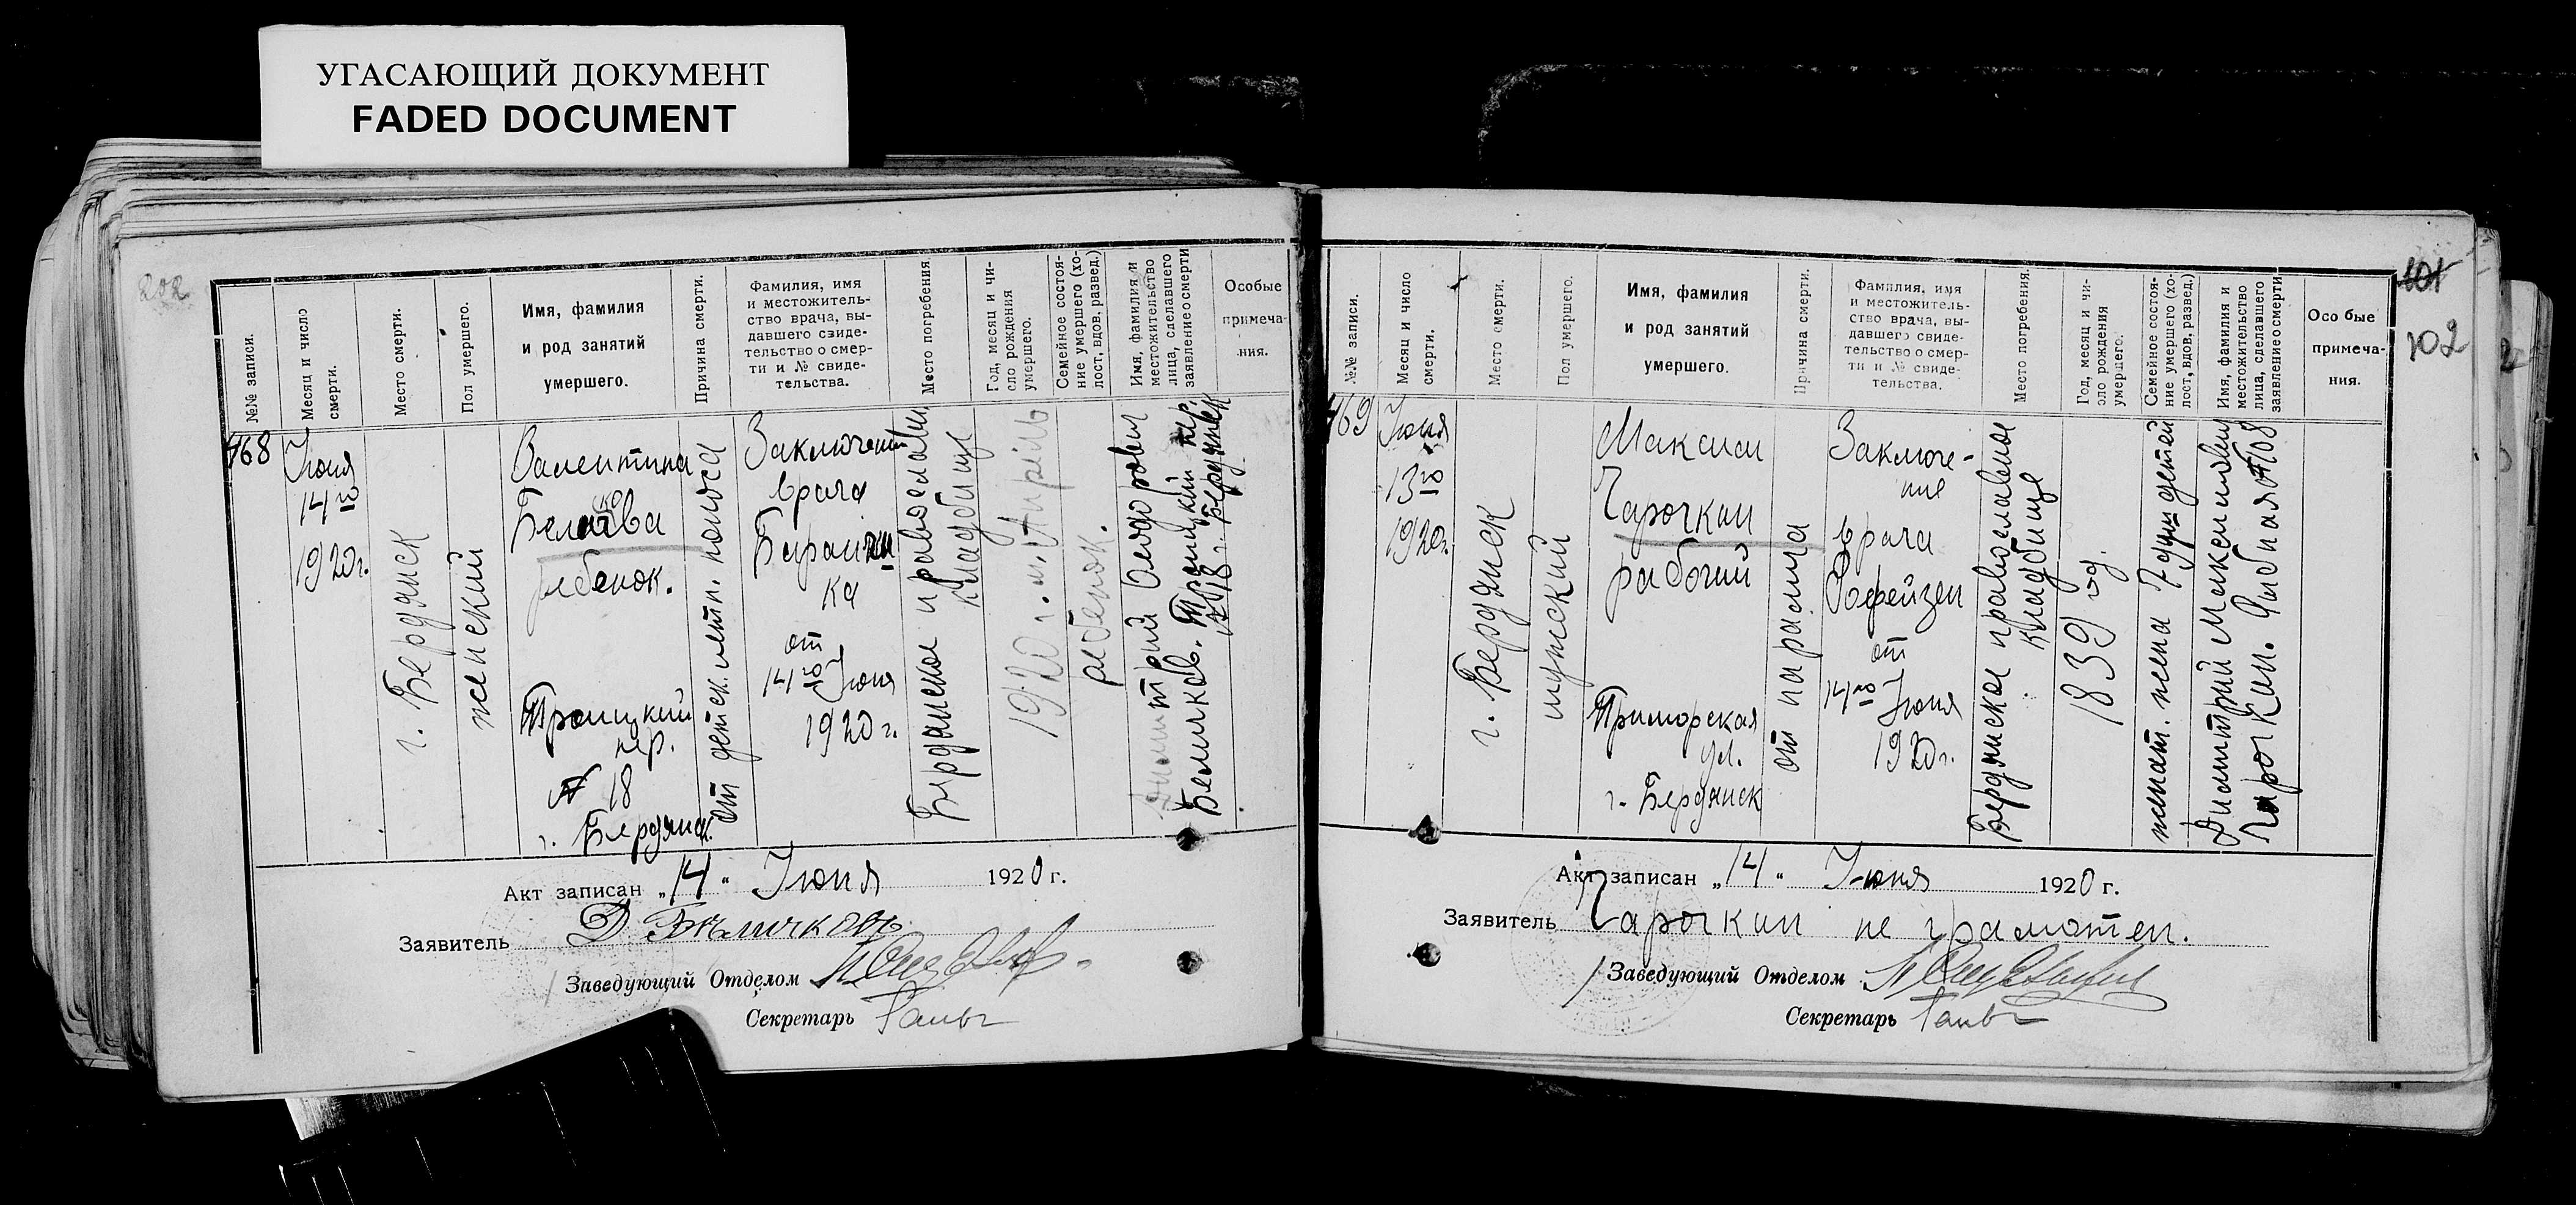 УГАСАЮЩИЙ ДОКУМЕНТ
FADED DOCUMENT
202
№№ записи.
Месяц и число
смерти.
Место смерти.
Пол умершего.
Имя, фамилия
и род занятий
умершего.
Причина смерти.
Фамилия, имя
и местожитель-
ство врача, вы-
давшего свиде-
тельство о смер-
ти и № свиде-
тельства.
Место погребения.
Год, месяц и чи-
сло рождения
умершего.
Семейное состоя-
ние умершего (хо-
лост, вдов, развед.)
Имя, фамилия и
местожительство
лица, сделавшего
заявление о смерти
Особые
примеча-
ния.
468
Июня
14го
1920г.
г. Бердянск
женский
Валентина
ребенок.
Троицкий
пер.
№ 18
г. Бердянск.
от детск. летн. поноса
Заключении
врача
ка
от
14го Июня
1920г.
Бердянское православн
кладбище
1920 г. м. Апрель
ребенок.
Димитрий
Беличков. Троицкий пер.
№ 18 г. Бердянск
Акт записан „14“ Июня 1920 г.
Заявитель Д Бѣличковъ
Заведующий Отделом
Секретарь
101
102
№№ записи.
Месяц и число
смерти.
Место смерти.
Пол умершего.
Имя, фамилия
и род занятий
умершего.
Причина смерти.
Фамилия, имя
и местожитель-
ство врача, вы-
давшего свиде-
тельство о смер-
ти и № свиде-
тельства.
Место погребения.
Год, месяц и чи-
сло рождения
умершего.
Семейное состоя-
ние умершего (хо-
лост, вдов, развед.)
Имя, фамилия и
местожительство
лица, сделавшего
заявление о смерти
Особые
примеча-
ния.
469
Июня
13го
1920г.
г. Бердянск
мужской
Максим
Чарочкин
рабочий
Приморская
ул.
г. Бердянск
от паралича
Заключе-
ние
врача
Гофейзен
от
14го Июня
1920г.
Бердянское православное
кладбище
1839 год.
женат. жена 7 душ детей
Димитрий Максимович
Чарочкин. №108
Акт записан „14“ Июня 1920 г.
Заявитель Чарочкин не грамотен.
Заведующий Отделом
Секретарь